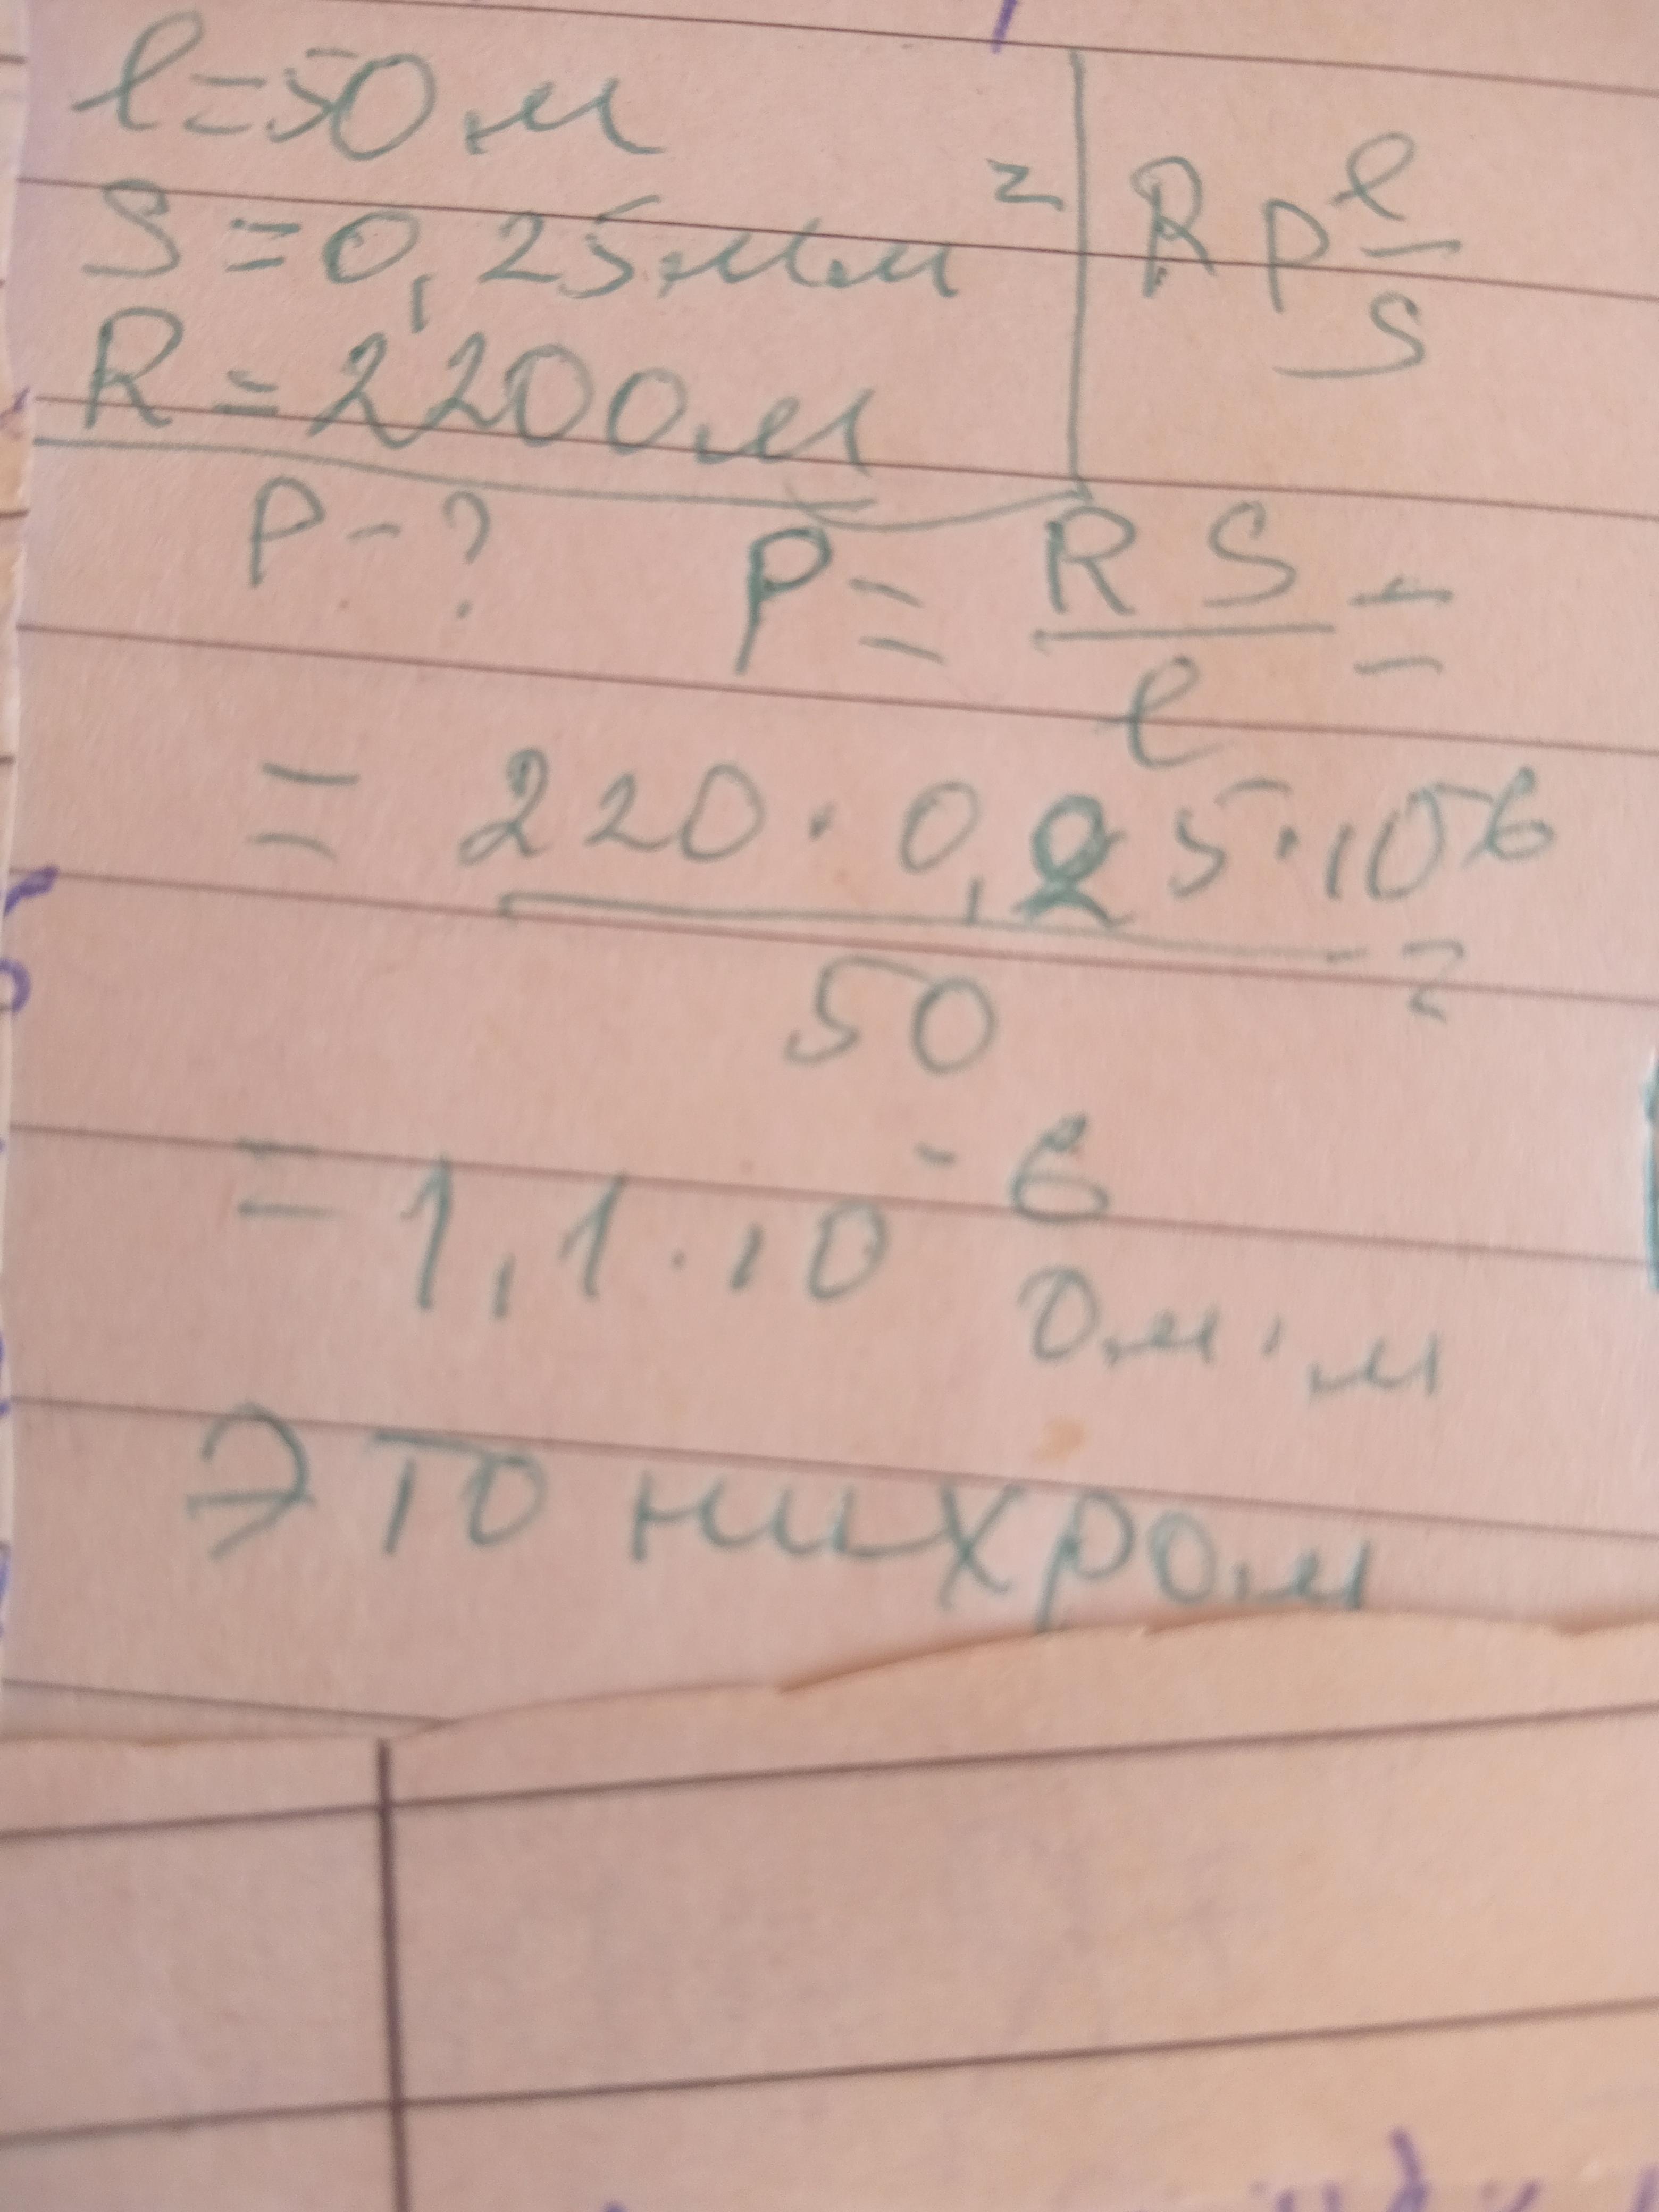 l=50 м
S = 0,25 мм²
R = 220 Ом
R ρ l/S
ρ - ?
ρ = RS/l =
= 220 · 0,25 · 10⁻⁶ / 50 =
= 1,1 · 10⁻⁶ Ом · м
Это нихром